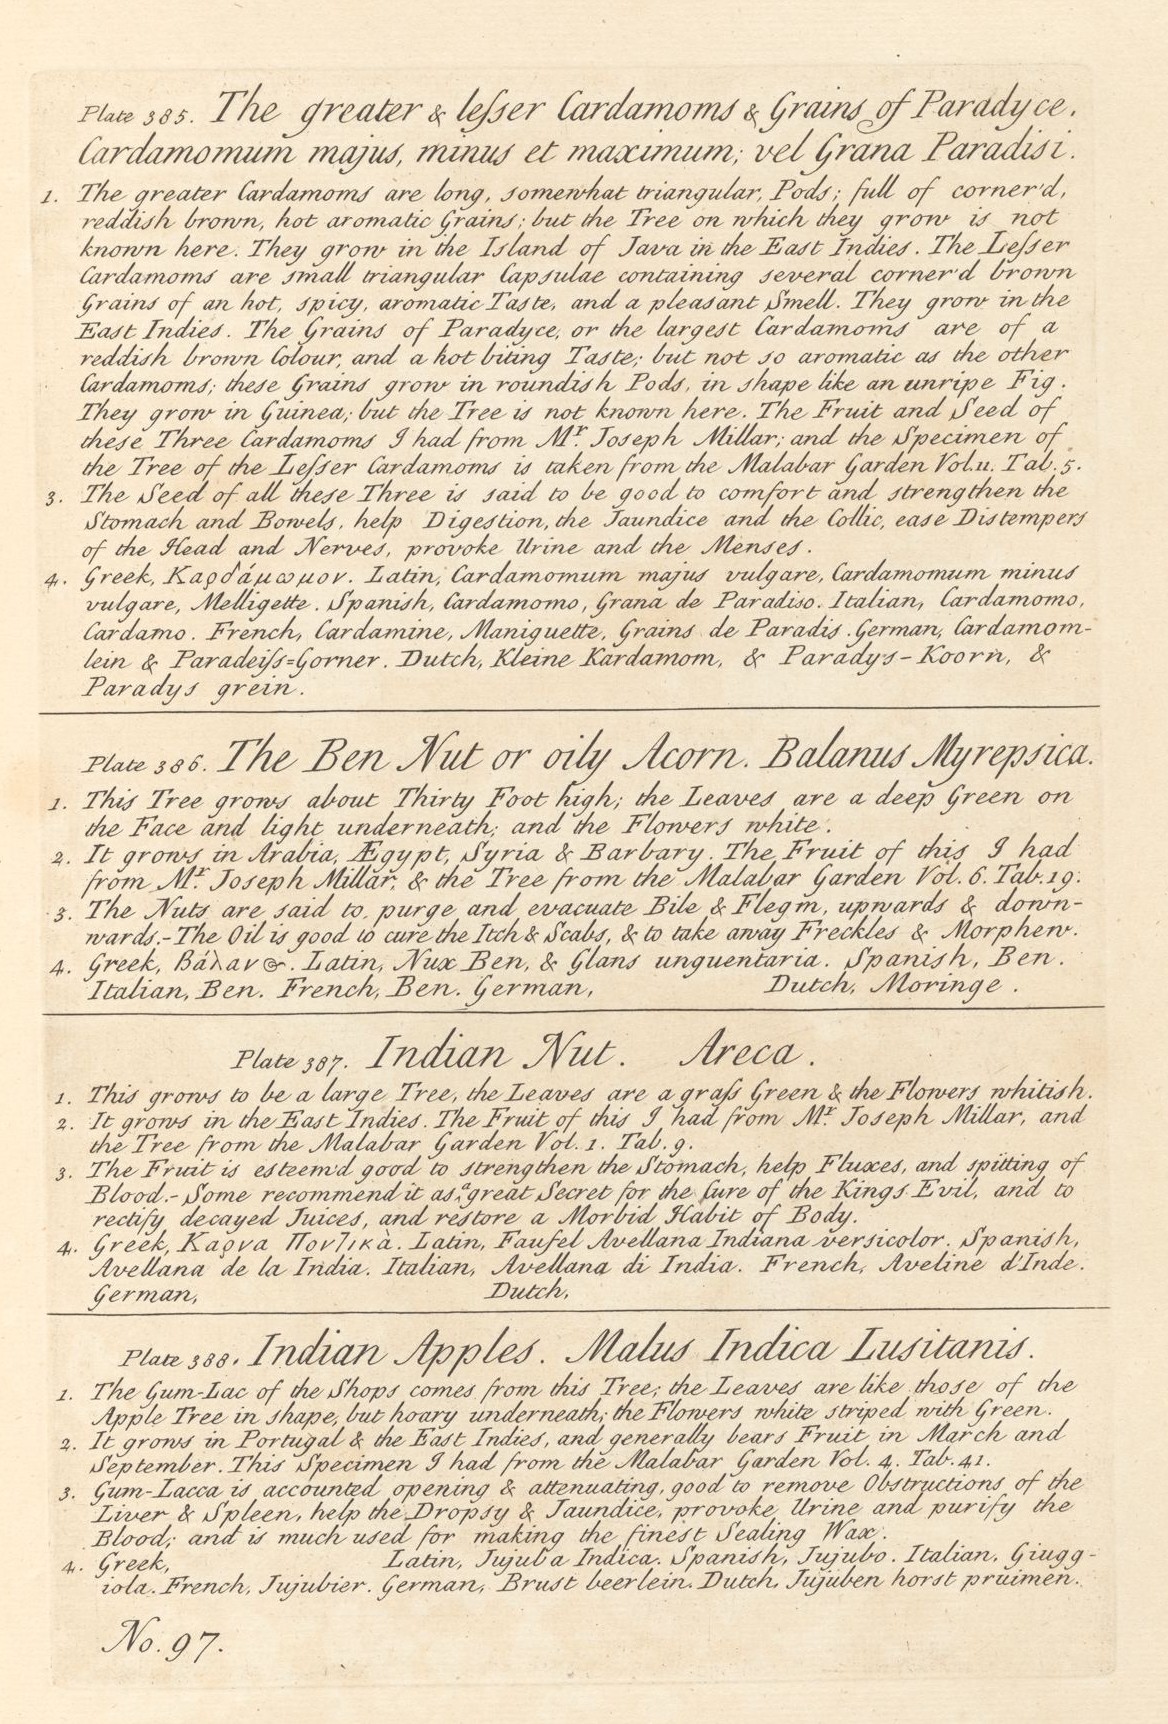 Plate 385. The greater & leſser Cardamoms & Grains of Paradyce.
Cardamomum majus, minus et maximum; vel Grana Paradisi.
1. The greater Cardamoms are long, somewhat triangular, Pods; full of corner'd,
reddish brown, hot aromatic Grains; but the Tree on which they grow is not
known here. They grow in the Island of Java in the East Indies. The Leſser
Cardamoms are small triangular Capsulae containing several corner'd brown
Grains of an hot, spicy, aromatic Taste, and a pleasant Smell. They grow in the
East Indies. The Grains of Paradyce, or the largest Cardamoms are of a
reddish brown Colour, and a hot biting Taste; but not so aromatic as the other
Cardamoms; these Grains grow in roundish Pods, in shape like an unripe Fig.
They grow in Guinea; but the Tree is not known here. The Fruit and Seed of
these Three Cardamoms I had from Mr. Joseph Millar; and the Specimen of
the Tree of the Leſser Cardamoms is taken from the Malabar Garden Vol. 11. Tab. 5.
3. The Seed of all these Three is said to be good to comfort and strengthen the
Stomach and Bowels, help Digestion, the Jaundice and the Collic, ease Distempers
of the Head and Nerves, provoke Urine and the Menses.
4. Greek, Καρδάμωμον. Latin, Cardamomum majus vulgare, Cardamomum minus
vulgare, Melligette. Spanish, Cardamomo, Grana de Paradiso. Italian, Cardamomo,
Cardamo. French, Cardamine, Maniguette, Grains de Paradis. German, Cardamom-
lein & Paradeiſs=Gorner. Dutch, Kleine Kardamom, & Paradys-Koorn, &
Paradys grein.
Plate 386. The Ben Nut or oily Acorn. Balanus Myrepsica.
1. This Tree grows about Thirty Foot high; the Leaves are a deep Green on
the Face and light underneath; and the Flowers white.
2. It grows in Arabia, Ægypt, Syria & Barbary. The Fruit of this I had
from Mr. Joseph Millar, & the Tree from the Malabar Garden Vol. 6. Tab. 19.
3. The Nuts are said to purge and evacuate Bile & Flegm, upwards & down-
wards.- The Oil is good to cure the Itch & Scabs, & to take away Freckles & Morphew.
4. Greek, Βάλανος. Latin, Nux Ben, & Glans unguentaria. Spanish, Ben.
Italian, Ben. French, Ben. German, Dutch, Moringe.
Plate 387. Indian Nut. Areca.
1. This grows to be a large Tree, the Leaves are a graſs Green & the Flowers whitish.
2. It grows in the East Indies. The Fruit of this I had from Mr. Joseph Millar, and
the Tree from the Malabar Garden Vol. 1. Tab. 9.
3. The Fruit is esteem'd good to strengthen the Stomach, help Fluxes, and spitting of
Blood.- Some recommend it as a great Secret for the Cure of the Kings Evil, and to
rectify decayed Juices, and restore a Morbid Habit of Body.
4. Greek, Καρνα Ποντικὰ. Latin, Faufel Avellana Indiana versicolor. Spanish,
Avellana de la India. Italian, Avellana di India. French, Aveline d'Inde.
German, Dutch,
Plate 388. Indian Apples. Malus Indica Lusitanis.
1. The Gum-Lac of the Shops comes from this Tree; the Leaves are like those of the
Apple Tree in shape, but hoary underneath; the Flowers white striped with Green.
2. It grows in Portugal & the East Indies, and generally bears Fruit in March and
September. This Specimen I had from the Malabar Garden Vol. 4. Tab. 41.
3. Gum-Lacca is accounted opening & attenuating, good to remove Obstructions of the
Liver & Spleen, help the Dropsy & Jaundice, provoke Urine and purify the
Blood; and is much used for making the finest Sealing Wax.
4. Greek, Latin, Jujuba Indica. Spanish, Jujubo. Italian, Giugg-
iola. French, Jujubier. German, Brust beerlein. Dutch, Jujuben horst pruimen.
No. 97.